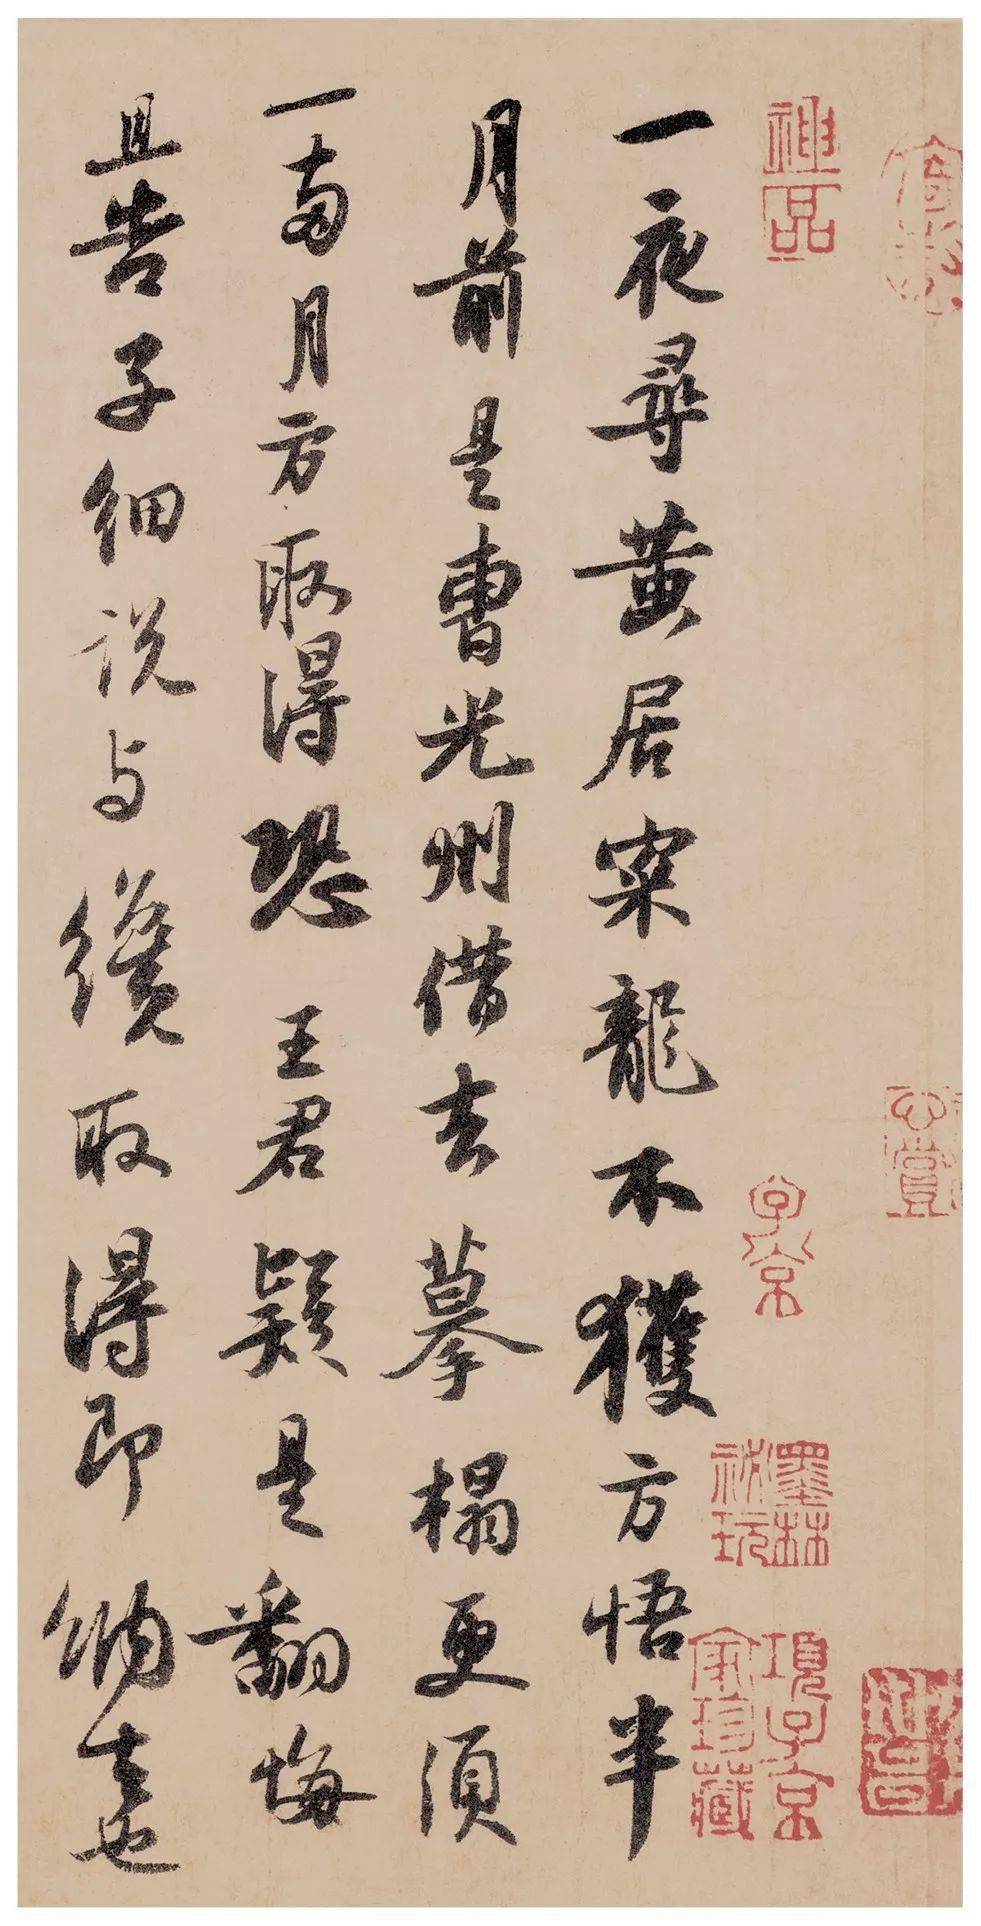 神品
子京
墨林祕玩
項子京家珍藏
一夜尋黃居寀龍不獲方悟半
月前是曹光州借去摹搨更須
一兩月方取得恐王君疑是翻悔
且告子細説与纔取得即納去也